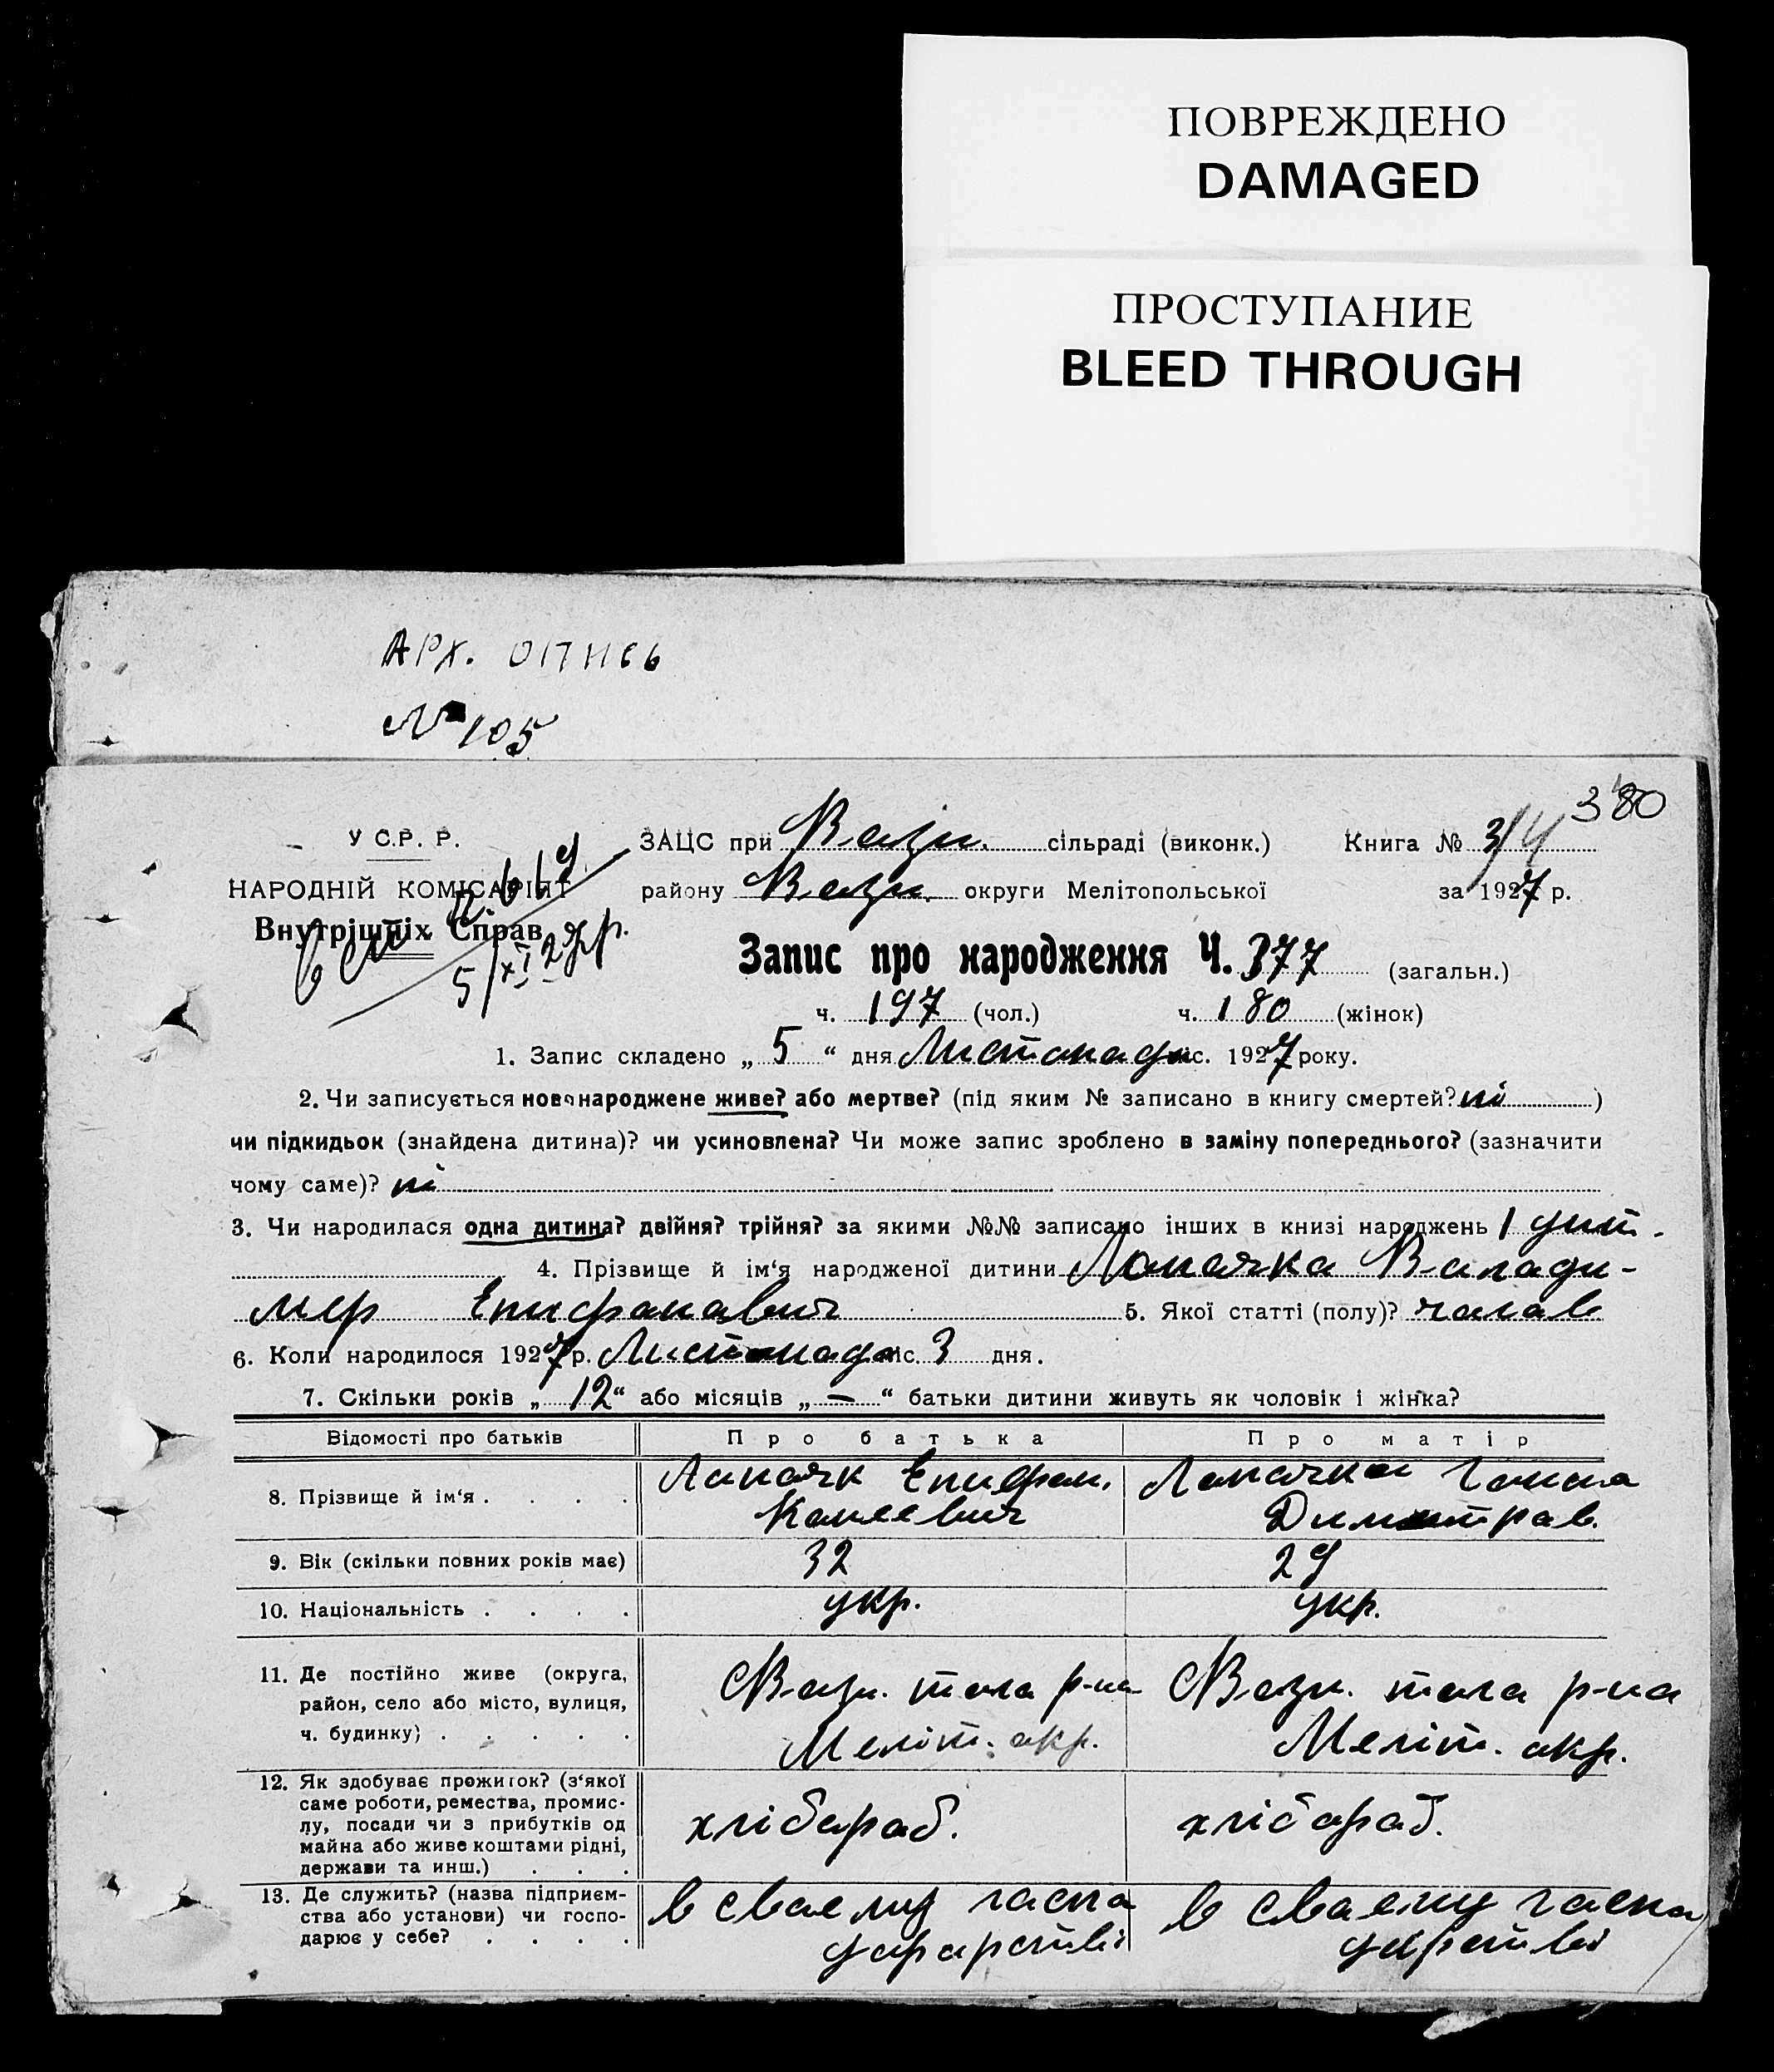 ПОВРЕЖДЕНО
DAMAGED
ПРОСТУПАНИЕ
BLEED THROUGH
АРХ. ОПИСЬ
№ 105
380
У С.Р. Р.
ЗАЦС при Вазн. сільраді (виконк.) Книга № 3/4
НАРОДНІЙ КОМІСАРІЯТ
району Вазн. округи Мелітопольської за 1927 р.
Внутрішніх Справ
5/XI-27р.
Запис про народження Ч. 377 (загальн.)
ч. 197 (чол.) ч. 180 (жінок)
1. Запис складено „ 5 “ дня Листопада міс. 1927 року.
2. Чи записується новонароджене живе? або мертве? (під яким № записано в книгу смертей? ні )
чи підкидьок (знайдена дитина)? чи усиновлена? Чи може запис зроблено в заміну попереднього? (зазначити
чому саме)? ні
3. Чи народилася одна дитина? двійня? трійня? за якими №№ записано інших в книзі народжень 1 дит.
4. Прізвище й ім‘я народженої дитини Лопачка Валади-
мер Епифанавич 5. Якої статті (полу)? чалав
6. Коли народилося 1927 р. Листопада міс. 3 дня.
7. Скільки років „ 12 “ або місяців „ — “ батьки дитини живуть як чоловік і жінка?
Відомості про батьків Про батька Про матір
8. Прізвище й ім‘я . . . . Лапачк Епифан. Лапачка Ганна
Димитрав.
9. Вік (скільки повних років має) 32 29
10. Національність . . . . укр. укр.
11. Де постійно живе (округа,
район, село або місто, вулиця,
ч. будинку) . . . . .
Вазн. тога р-на Вазн. тога р-на
Меліт. акр. Меліт. акр.
12. Як здобуває прожиток? (з‘якої
саме роботи, ремества, промис-
лу, посади чи з прибутків од
майна або живе коштами рідні,
держави та инш.) . . .
хлібараб. хлібараб.
13. Де служить? (назва підприєм-
ства або установи) чи госпо-
дарює у себе? . . . .
в сваему гаспа в сваему гаспа